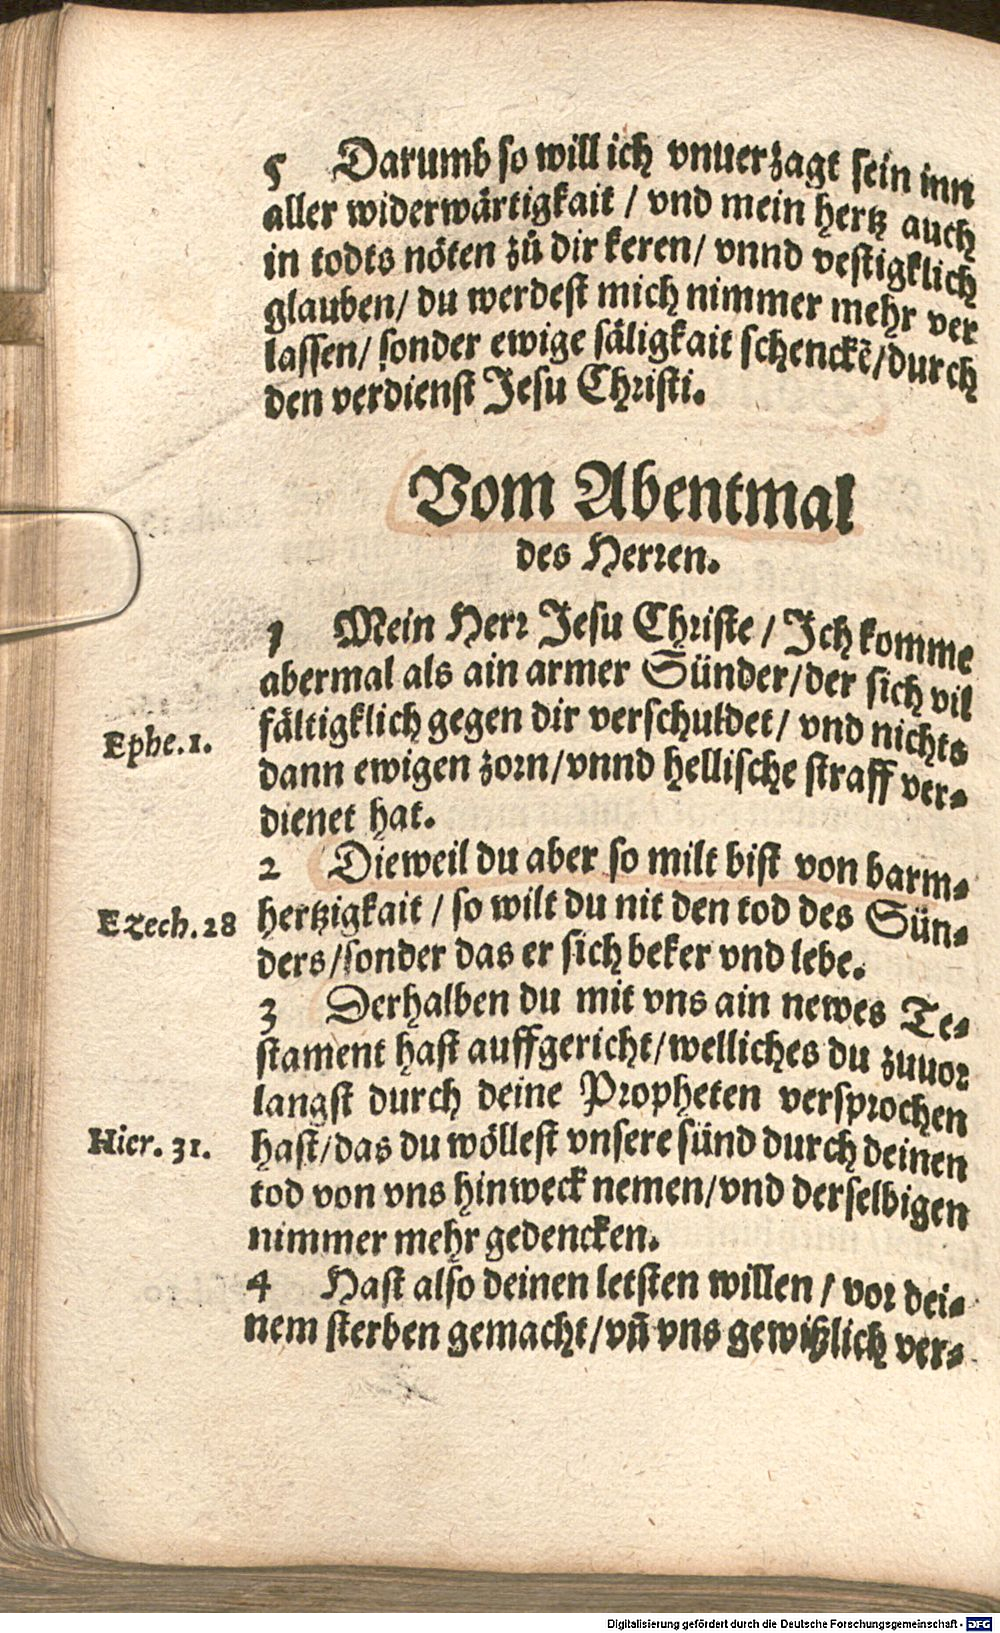 5 Darumb so will ich vnuerzagt sein inn
aller widerwärtigkait / vnd mein hertz auch
in todts nöten zů dir keren/ vnnd vestigklich
glauben/ du werdest mich nimmer mehr ver
lassen/ sonder ewige säligkait schenckē/durch
den verdienst Jesu Christi.
Vom Abentmal
des Herren.
1 Mein Herr Jesu Christe / Ich komme
abermal als ain armer Sünder/der sich vil
fältigklich gegen dir verschuldet/ vnd nichts
Ephe.1.
dann ewigen zorn/vnnd hellische straff ver-
dienet hat.
2 Dieweil du aber so milt bist von barm-
hertzigkait / so wilt du nit den tod des Sün-
Ezech.28
ders/sonder das er sich beker vnd lebe.
3 Derhalben du mit vns ain newes Te-
stament hast auffgericht/welliches du zuuor
langst durch deine Propheten versprochen
hast/das du wöllest vnsere sünd durch deinen
Hier. 31.
tod von vns hinweck nemen/vnd derselbigen
nimmer mehr gedencken.
4 Hast also deinen letsten willen / vor dei-
nem sterben gemacht/vñ vns gewißlich ver-
Digitalisierung gefördert durch die Deutsche Forschungsgemeinschaft - DFG